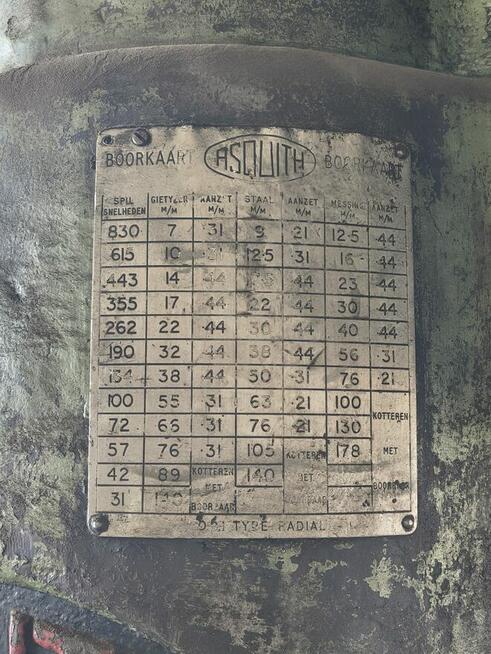 BOORKAART ASQUITH BOORKAART
SPIL SNELHEDEN GIETYZER M/M AANZET M/M STAAL M/M AANZET M/M MESSING M/M AANZET M/M
830 7 ·31 9 ·21 12·5 ·44
615 10 ·31 12·5 ·31 16 ·44
443 14 ·44 ·44 23 ·44
355 17 ·44 22 ·44 30 ·44
262 22 ·44 30 ·44 40 ·44
190 32 ·44 38 ·44 56 ·31
134 38 ·44 50 ·31 76 ·21
100 55 ·31 63 ·21 100 KOTTEREN
72 66 ·31 76 ·21 130
57 76 ·31 105 KOTTEREN 178 MET
42 89 KOTTEREN MET 140 MET BOORBAAR
31 BOORBAAR
TYPE RADIAL